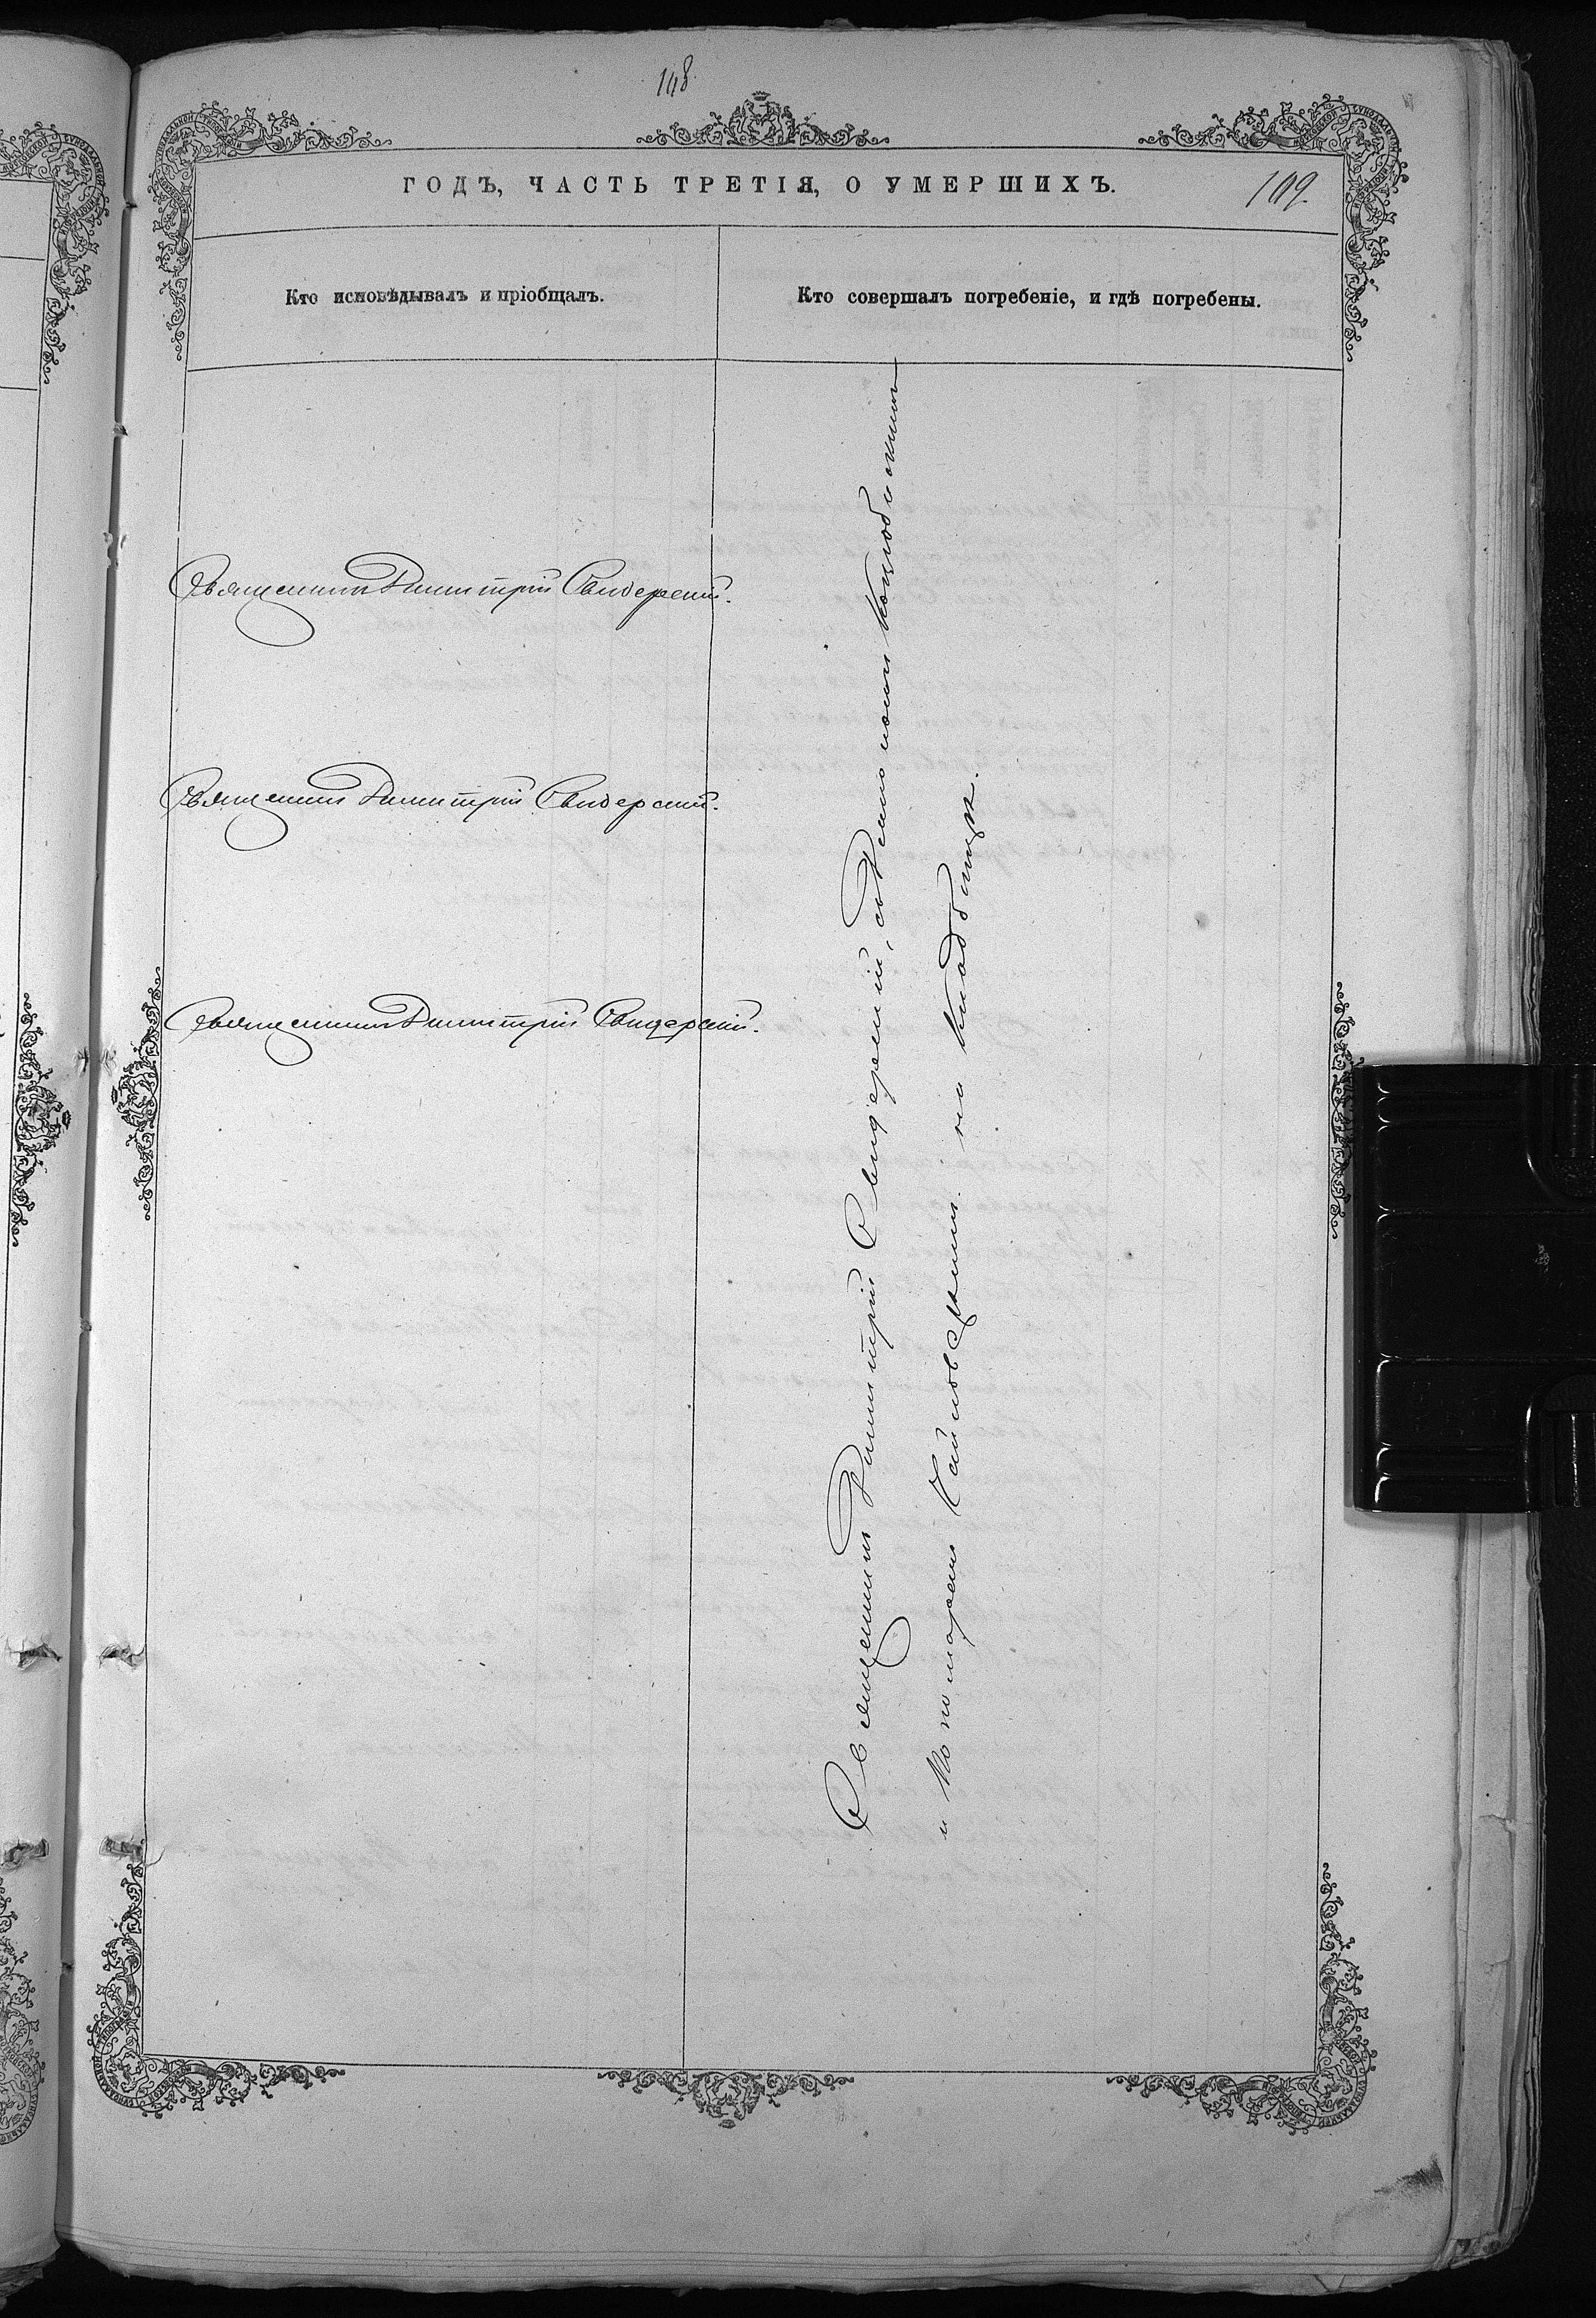 148
ГОДЪ, ЧАСТЬ ТРЕТІЯ, О УМЕРШИХЪ.
109.
Кто исповѣдывалъ и пріобщалъ.
Кто совершалъ погребеніе, и гдѣ погребены.
Священникъ Димитрій Свидерскій.
Священникъ Димитрій Свидерскій.
Священникъ Димитрій Свидерскій.
Священникъ Димитрій Свидерскій, съ Діакономъ
и Пономаремъ на кладбищѣ.